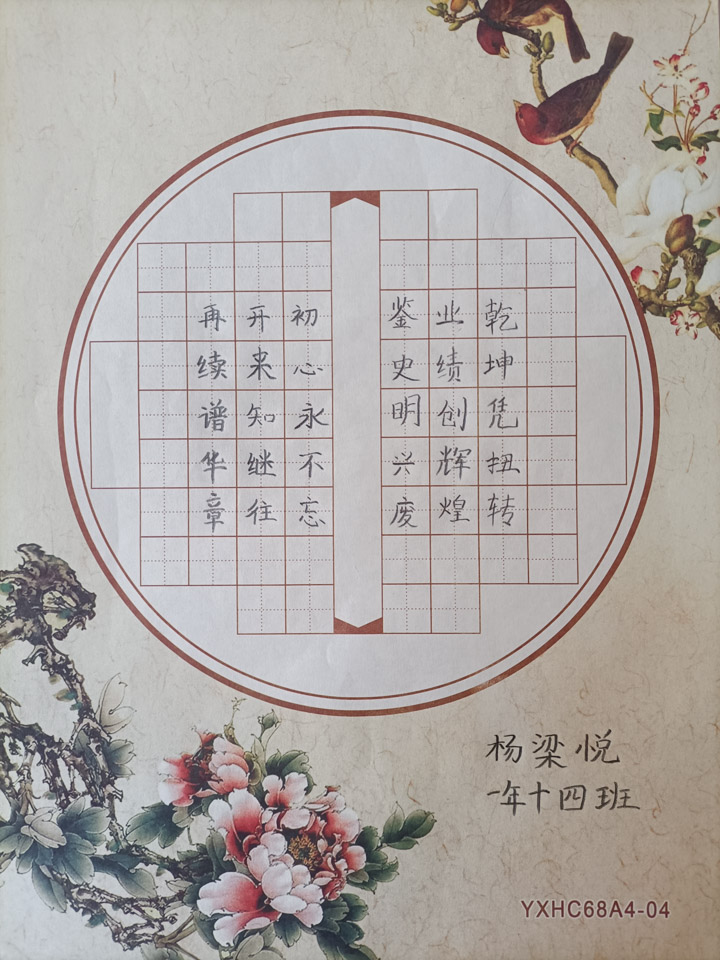 乾坤凭扭转
业绩创辉煌
鉴史明兴废
初心永不忘
开来知继往
再续谱华章
杨梁悦
一年十四班
YXHC68A4-04